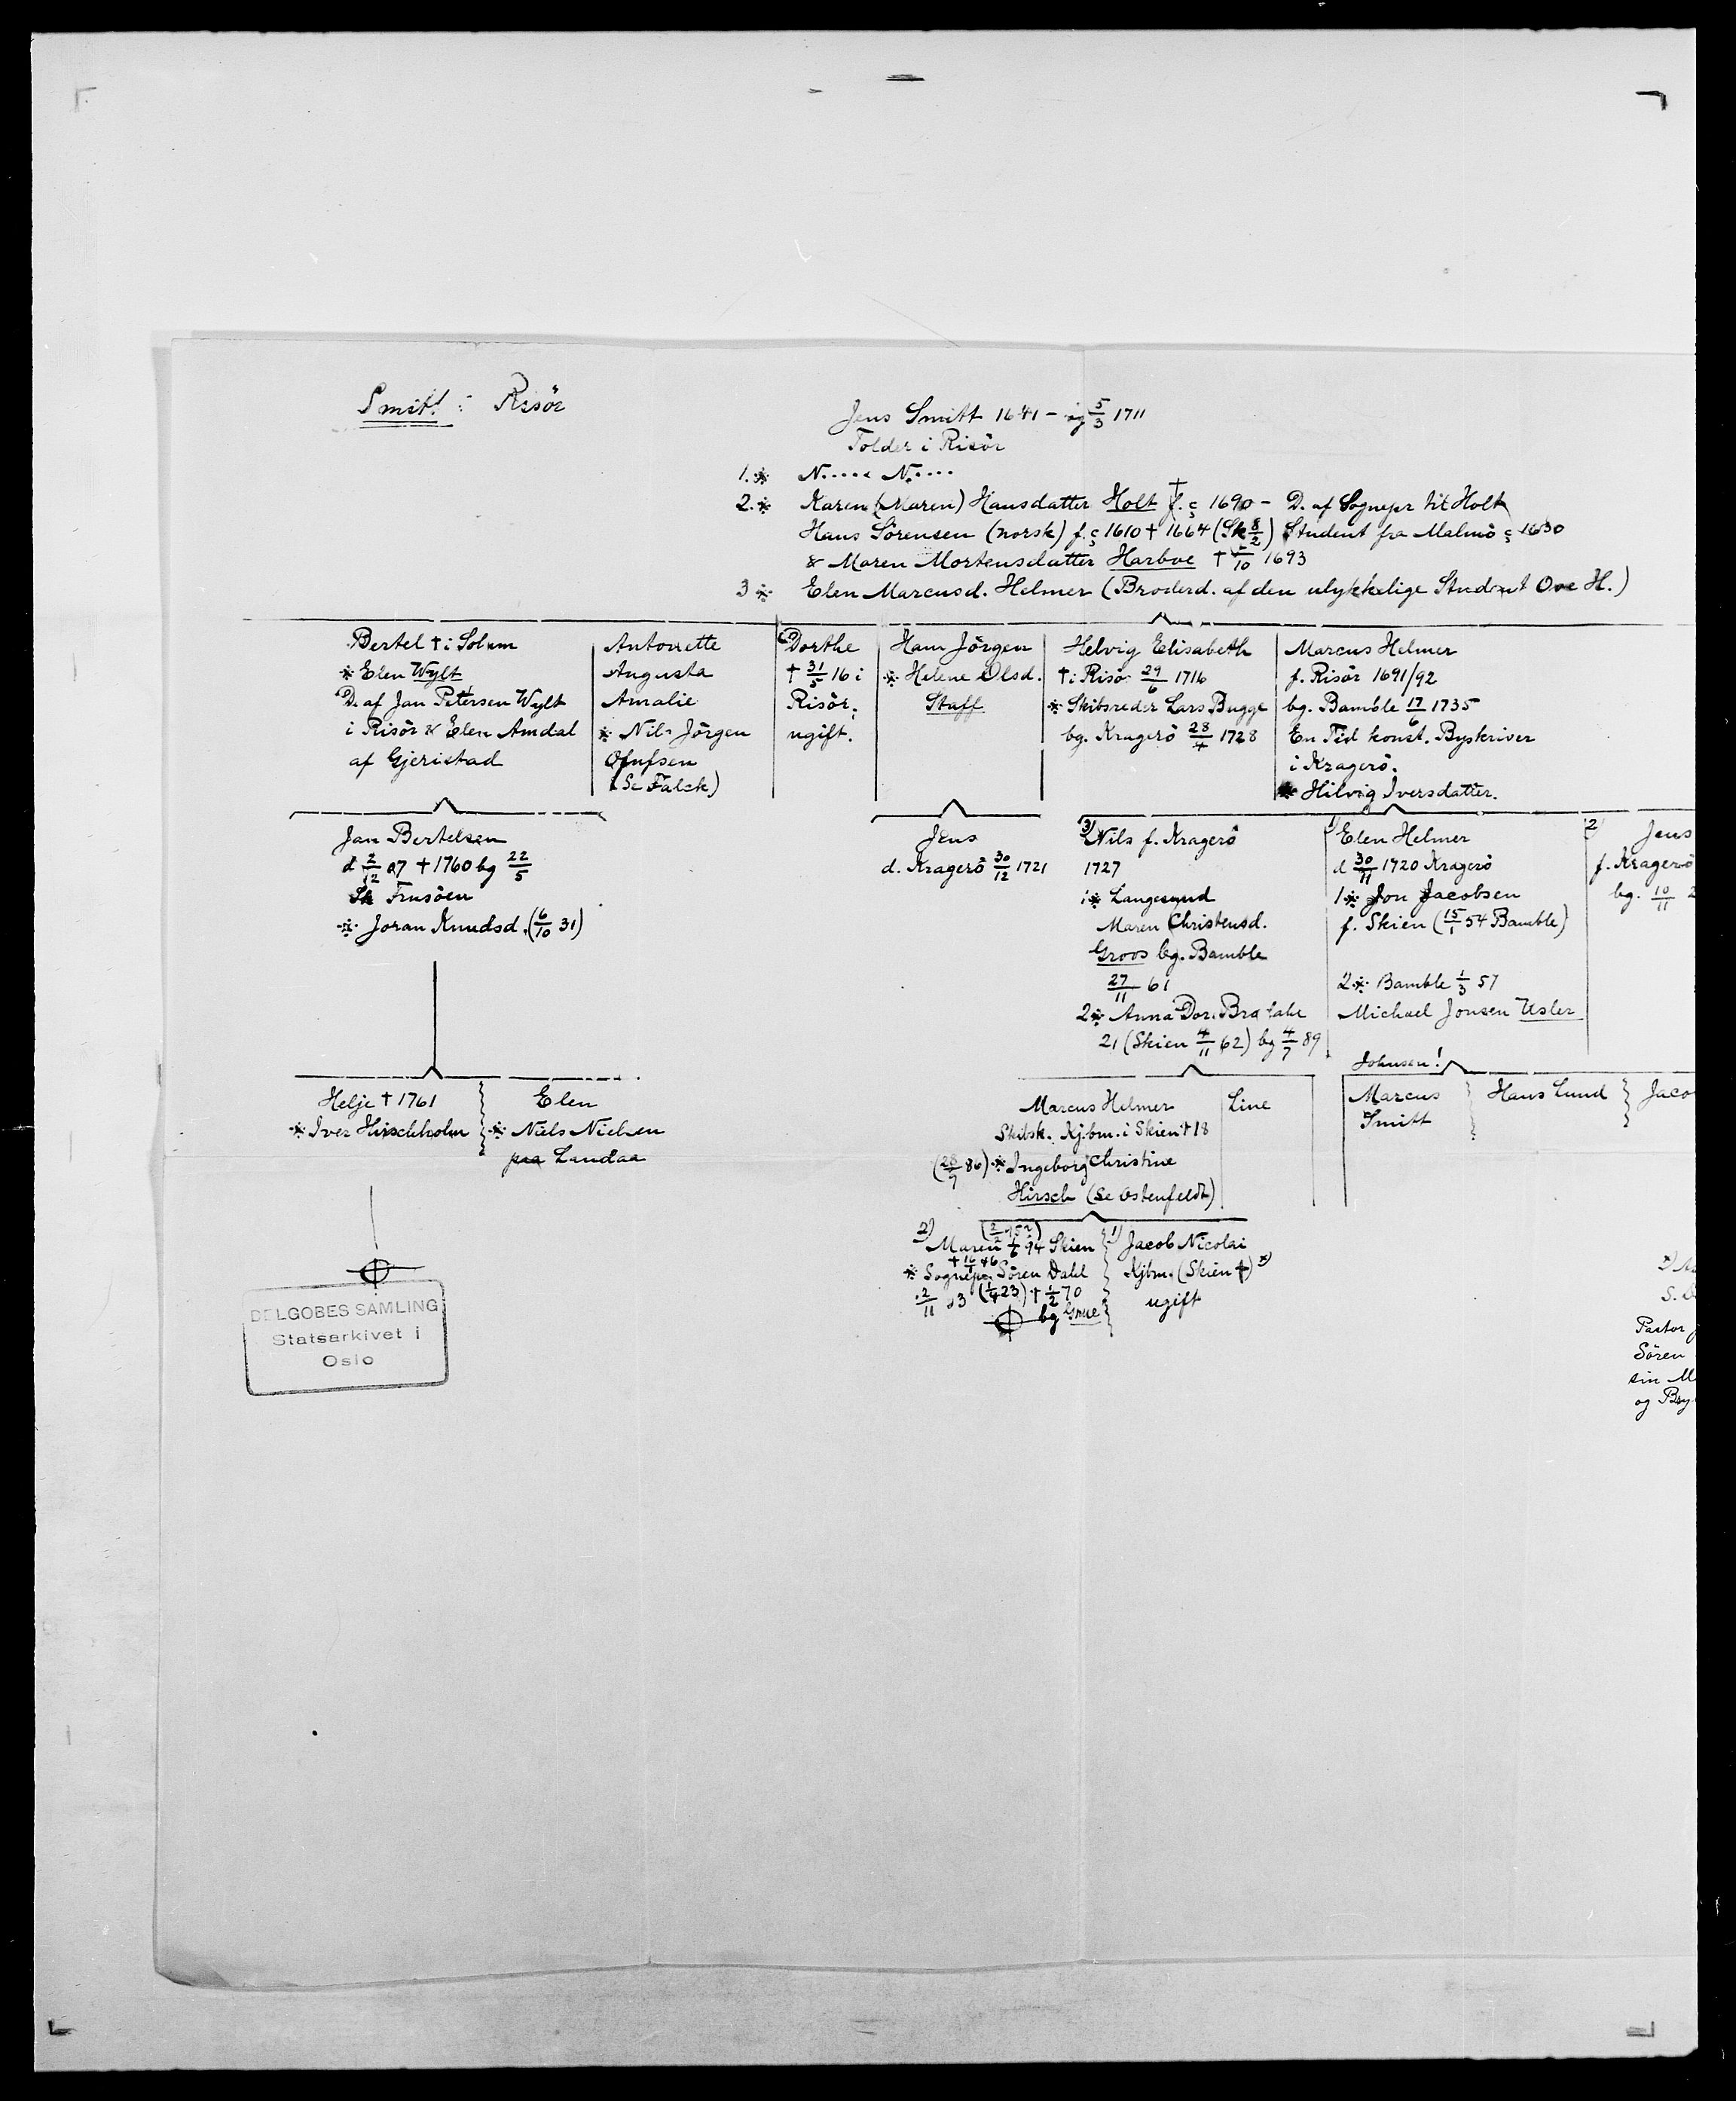 Smitt : Risör
Jens Smitt 1641 - bg 5/3 1711
Tolder i Risör
1.* N..... N.....
2.* Karen (Maren) Hansdatter Holt † f. c 1690 - D. af Sognepr til Holt
Hans Sörensen (norsk) f. c 1610 † 1664 (Sk 8/2) Student fra Malmö c 1630
& Maren Mortensdatter Harboe † /10 1693
3 * Elen Marcusd. Helmer (Broderd. af den ulykkelige Student Ove H.)
Bertel † i Solum
* Elen Wylt
D. af Jan Petersen Wylt
i Risör & Elen Amdal
af Gjeristad
Antoinette
Augusta
Amalie
* Nils Jörgen
Olufsen
(Se Falck)
Dorthe
† 31/5 16 i
Risör.
ugift.
Hans Jörgen
* Helene Olsd.
Staff
Helvig Elisabeth
† i Risö. 29/6 1716
* Skibsreder Lars Bugge
bg. Kragerö 28/4 1728
Marcus Helmer
f. Risör 1691/92
bg. Bamble 17/6 1735
En Tid konst. Byskriver
i Kragerö.
* Hilvig Iversdatter.
Jan Bertelsen
d 2/12 07 † 1760 bg 22/5
Sk Frusöen
* Joran Knudsd. (6/10 31)
Jens
d. Kragerö 30/12 1721
3) Nils f. Kragerö
1727
1 * Langesund
Maren Christensd.
Groos bg. Bamble
27/11 61
2 * Anna Dor.
21 (Skien 4/11 62) bg 4/7 89
1) Elen Helmer
d 30/11 1720 Kragerö
1 * Jon Jacobsen
f. Skien (15/1 54 Bamble)
2 * Bamble 1/3 57
Michael Jonsen Usler
Johnsen!
2) Jens
f. Kragerö
bg. 10/11 2
Helje † 1761
* Iver Hirschholm
Elen
* Niels Nielsen
paa Landaa
Marcus Helmer
Skibsk. Kjbm. i Skien † 18
(28/7 86) * Ingeborg Christine
Hirsch (Se Ostenfeldt)
Line
Marcus
Smitt
Hans Lund
Jaco
2) (2/2 95?)
Maren 1/6 94 Skien
† 16/1 46
* Sognepr. Sören Dahl
2/11 93 (1/4 23) † 1/2 70
bg Grue
1) Jacob Nicolai
Kjbm. (Skien †) *)
ugift
S.
Pastor
Sören
sin M
og Bry
DELGOBES SAMLING
Statsarkivet i
Oslo